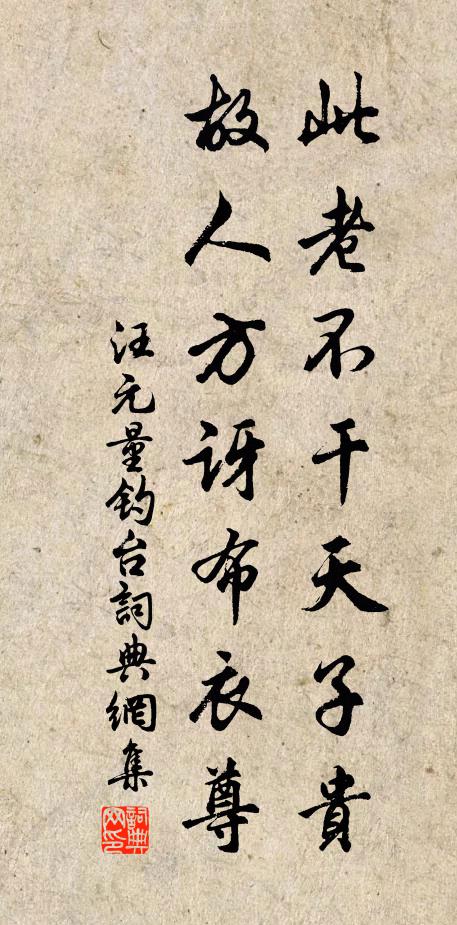 此老不干天子貴
故人方訝布衣尊
汪元量釣台詞典網集
詞典網印